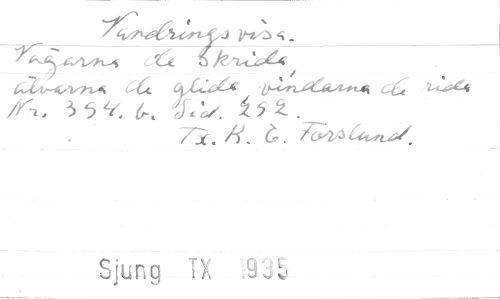 Vandringsvisa.
Vågarna de skrida,
älvarna de glida, vindarna de rida
Nr. 394. b. Sid. 292.
Tx. K. E. Forslund.
Sjung TX 1935